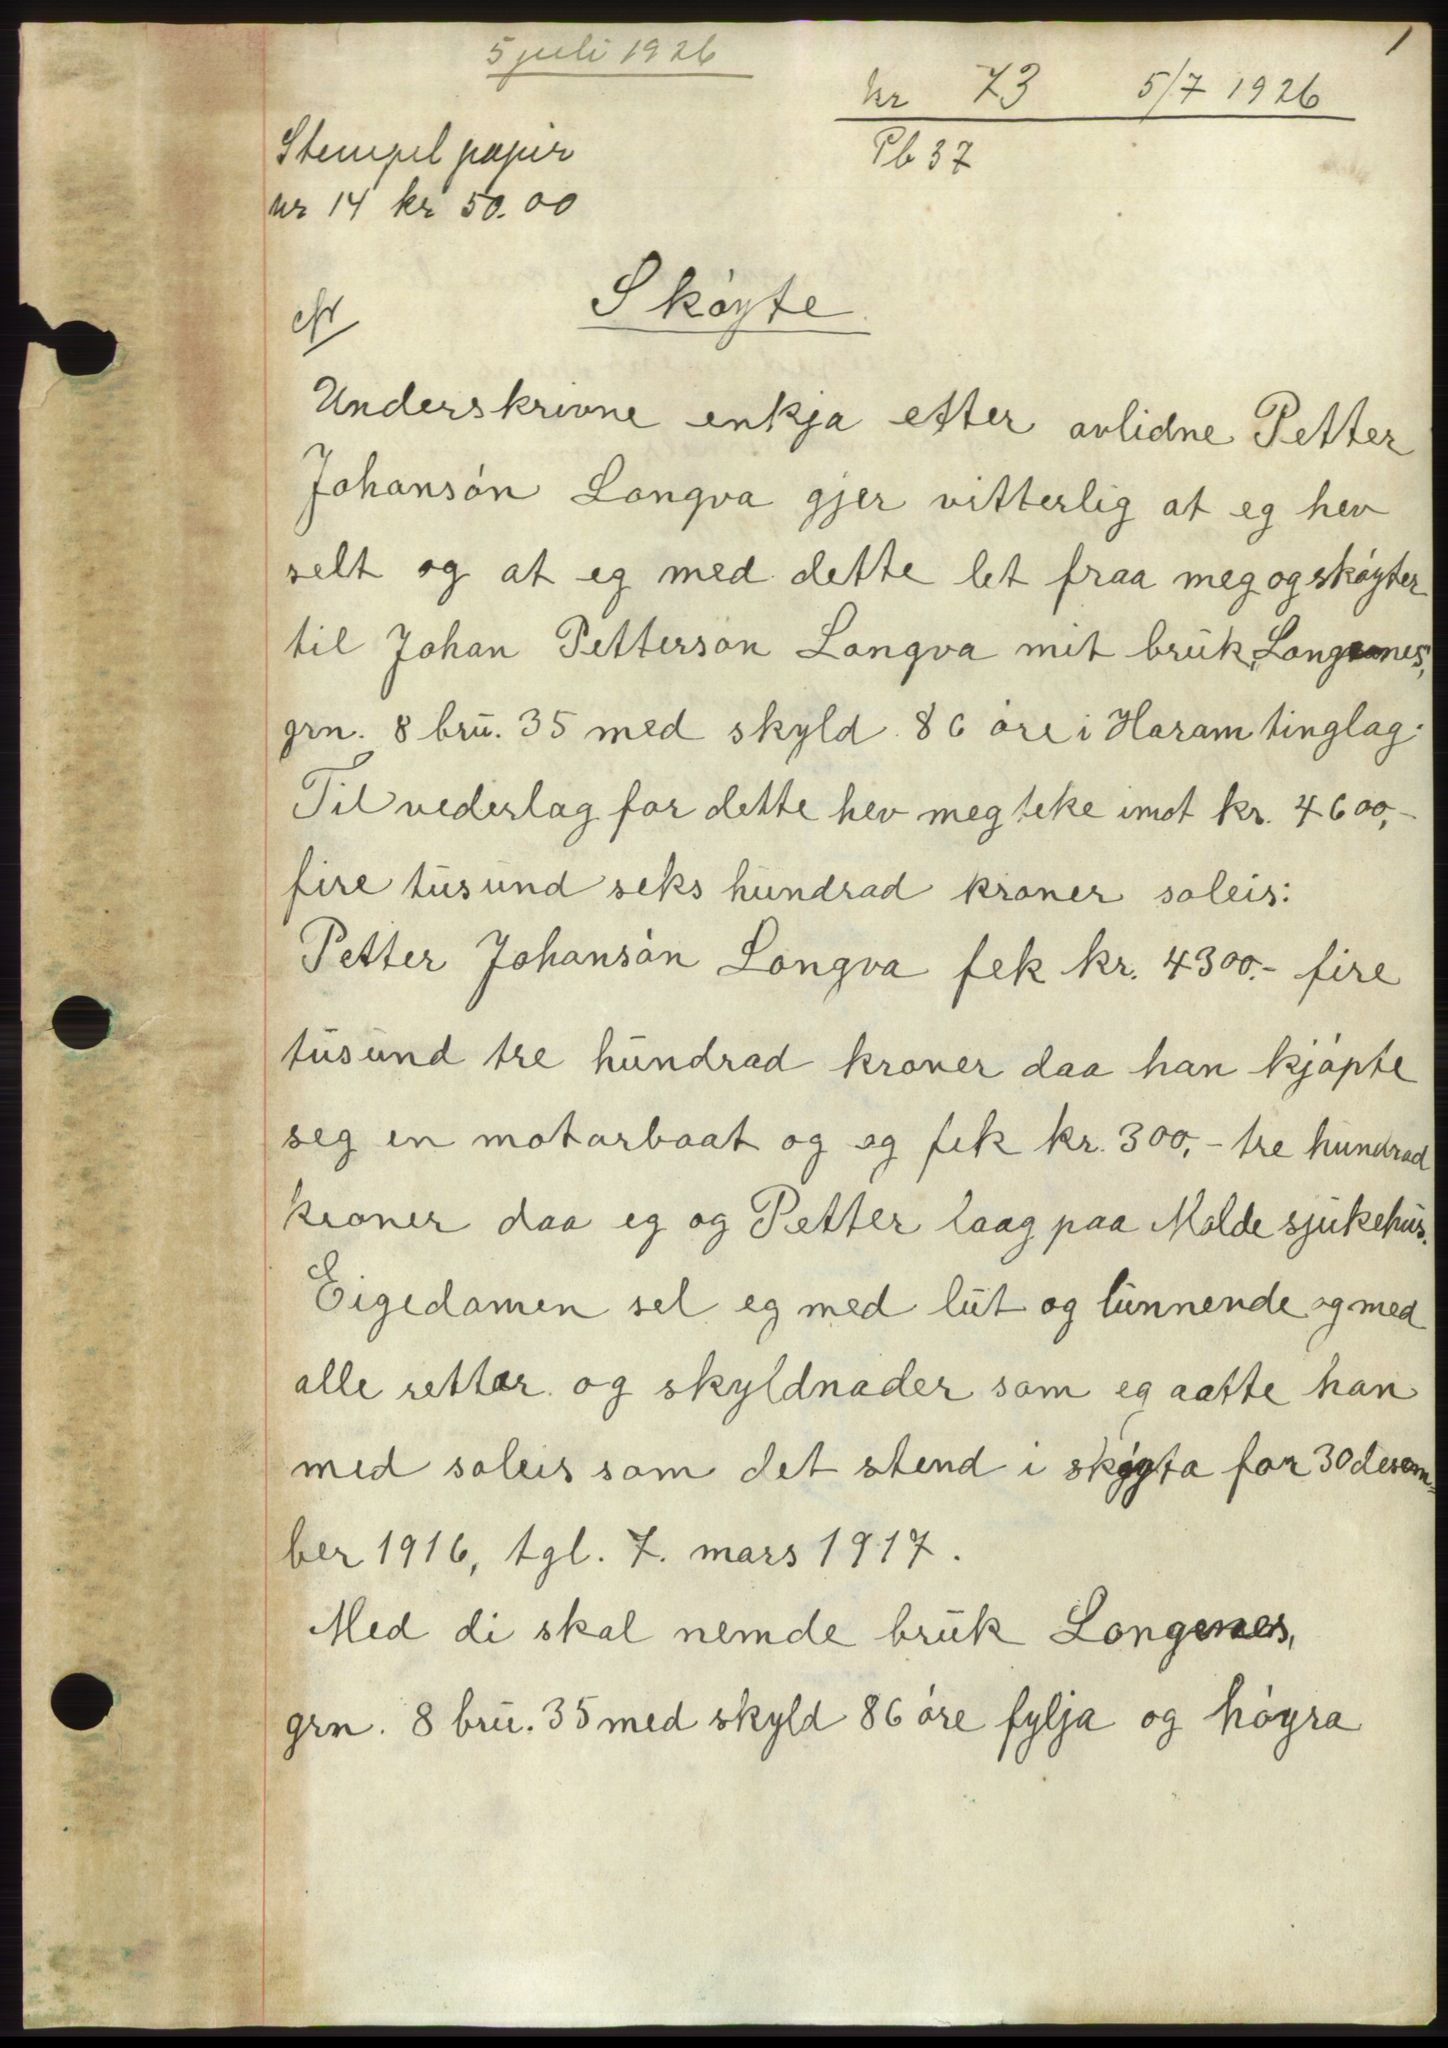 1
5 juli 1926
nr 73 5/7 1926
Pb 37
Stempel papir
nr 14 kr 50.00
Skøyte
Underskrivne enkja etter avlidne Petter
Johansøn Longva gjer vitterlig at eg hev
selt og at eg med dette let fraa meg og skøyter
til Johan Petterson Longva mit bruk, Longenes,
grn. 8 bru. 35 med skyld 86 øre i Haram tinglag.
Til vederlag for dette hev meg teke imot kr. 4600,-
fire tusund seks hundrad kroner soleis:
Petter Johansøn Longva fek kr. 4300.- fire
tusund tre hundrad kroner daa han kjøpte
seg en motorbaat og eg fek kr. 300,- tre hundrad
kroner daa eg og Petter laag paa Molde sjukehus.
Eigedomen sel eg med lut og lunnende og med
alle rettar og skyldnader som eg aatte han
med soleis som det stend i skøyta for 30 desem=
ber 1916, tgl. 7. mars 1917.
Med di skal nemde bruk Longenes,
grn. 8 bru. 35 med skyld 86 øre fylja og høyra